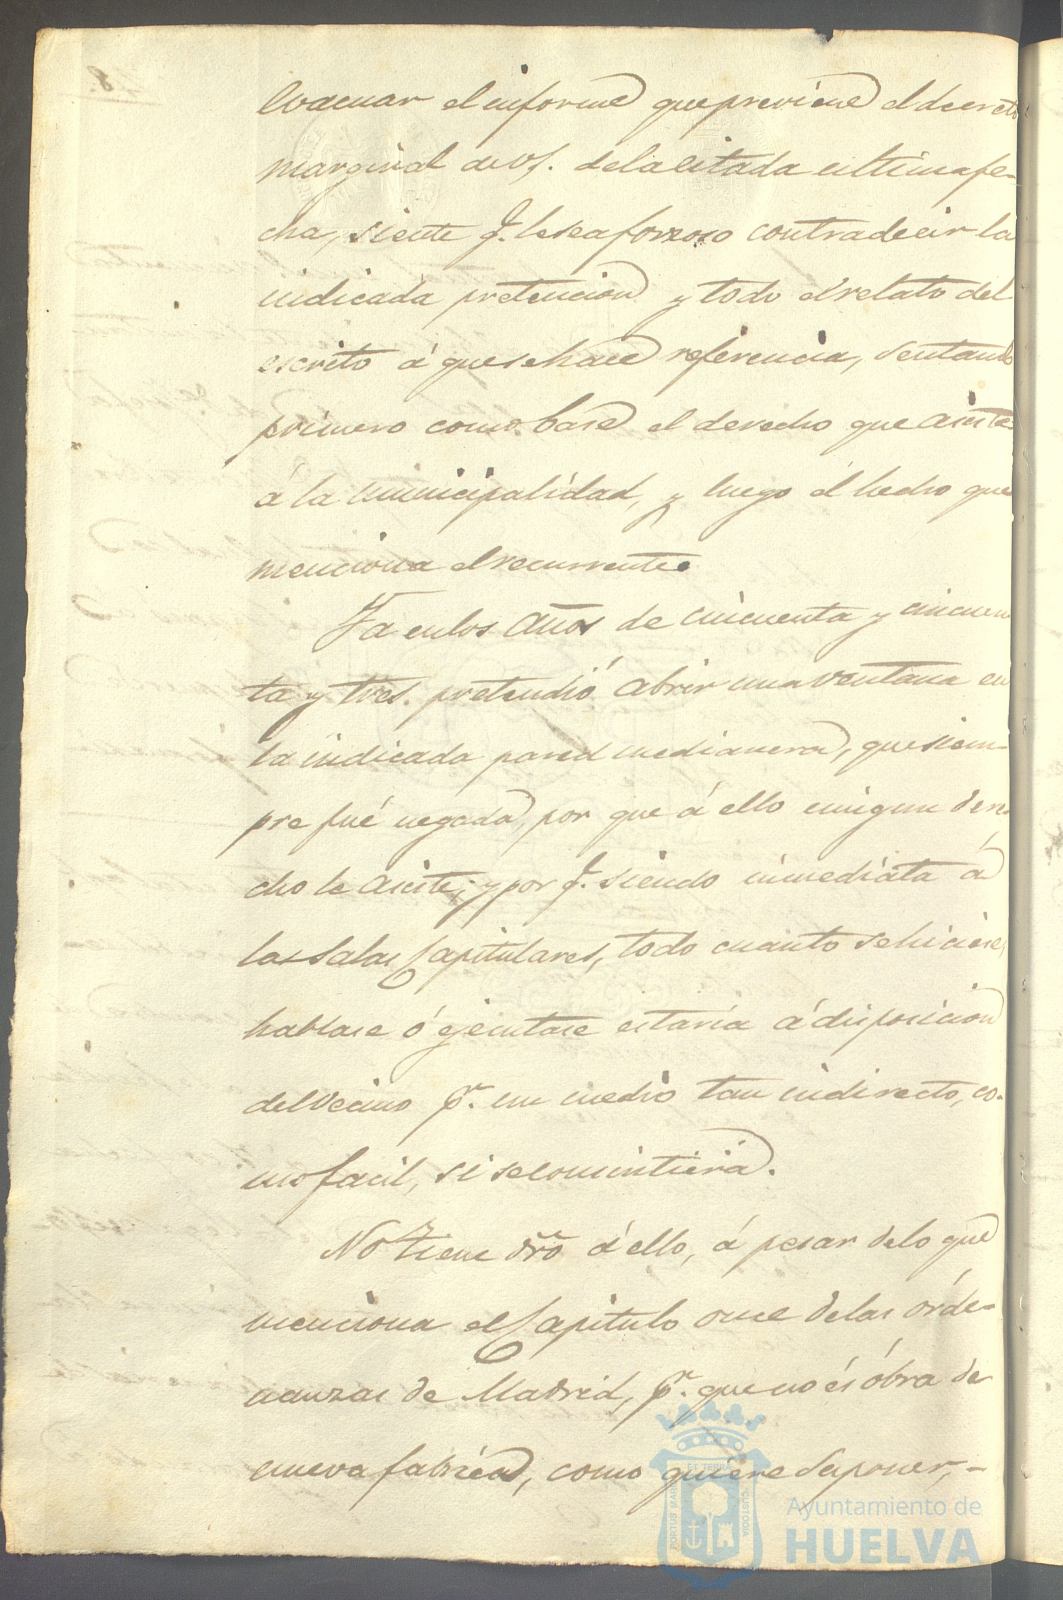 Evacuar el informe que previene el decreto
marginal de VS. de la citada ultima fe-
cha, siente q.e le sea forzoso contradecir la
indicada pretencion y todo el relato del
escrito á que se hace referencia, sentando
primero como base el derecho que asiste
á la municipalidad, y luego el hecho que
menciona el recurrente.
Ya en los años de cincuenta y cincuen
ta y tres. pretendió abrir una ventana en
la indicada pared medianera, que siem-
pre fué negada, por que á ello ningun dere
cho le asiste; y por q.e siendo inmediata á
las Salas Capitulares, todo cuanto se hiciese,
hablase ó ejecutase estaria á disposicion
del vecino p.r un medio tan indirecto, co-
mo facil, si se consintiera.
No tiene dro á ello, á pesar de lo que
menciona el Capitulo once de las orde-
nanzas de Madrid, p.r que no és óbra de
nueva fabrica, como quiere suponer,-
PORTUS MARIS
ET TERRAE
CUSTODIA
Ayuntamiento de
HUELVA